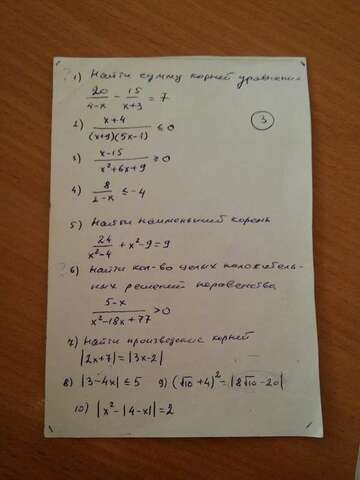 ? 1) Найти сумму корней уравнения
20/(4-x) - 15/(x+3) = 7
2) (x+4)/((x+9)(5x-1)) ≤ 0
③
3) (x-15)/(x²+6x+9) ≥ 0
4) 8/(2-x) ≤ -4
5) Найти наименьший корень
24/(x²-4) + x²-9 = 9
? 6) Найти кол-во целых положитель-
ных решений неравенства
(5-x)/(x²-18x+77) > 0
7) Найти произведение корней
|2x+7| = |3x-2|
8) |3-4x| ≤ 5 9) (√10+4)² = |8√10-20|
10) |x²-|4-x|| = 2